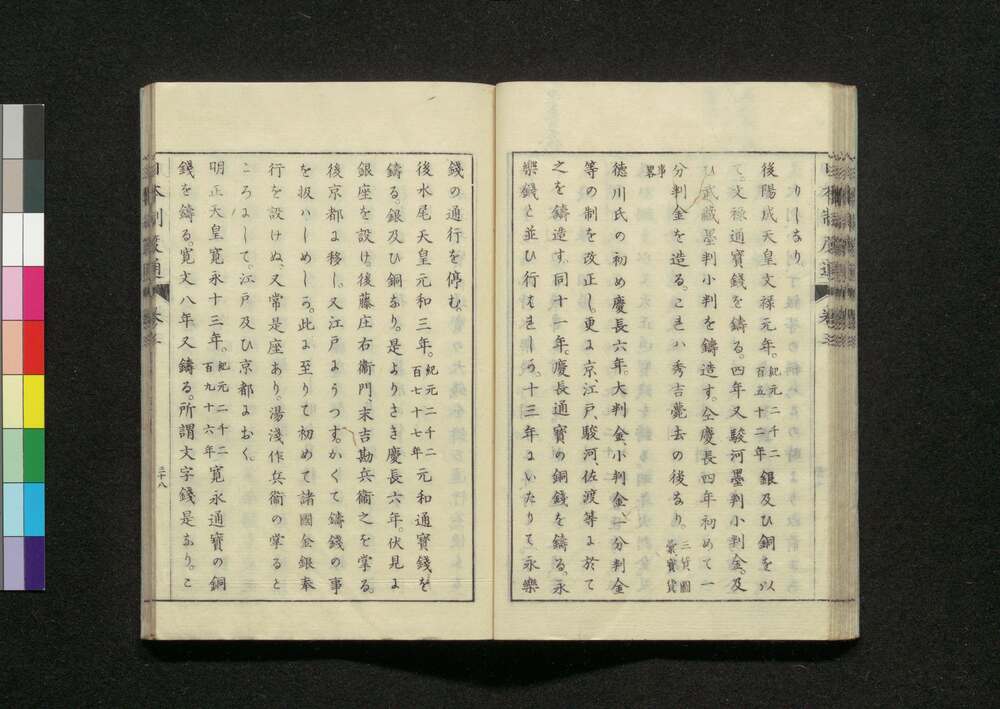 りしなり。
後陽成天皇文禄元年。紀元二千二百五十二年銀及ひ銅を以
て。文禄通寶錢を鑄る。四年又駿河墨判小判金。及
ひ武藏墨判小判を鑄造す。仝慶長四年初めて一
分判金を造る。これハ秀吉薨去の後なり。三貨圖彙、寶貨
事畧
徳川氏の初め慶長六年。大判金、小判金、一分判金
等の制を改正し。更に京、江戸、駿河、佐渡等に於て
之を鑄造す。同十一年。慶長通寶の銅錢を鑄る。永
樂錢と並ひ行はせしむ。十三年にいたりて永樂
錢の通行を停む。
後水尾天皇元和三年。紀元二千二百七十七年元和通寶錢を
鑄る。銀及ひ銅なり。是よりさき慶長六年。伏見に
銀座を設け。後藤庄右衞門。末吉勘兵衞之を掌る。
後京都に移し。又江戸にうつす。かくて鑄錢の事
を扱ハしめしむ。此に至りて初めて諸國金銀奉
行を設けぬ。又常是座あり。湯淺作兵衞の掌ると
ころにして。江戸及ひ京都におく。
明正天皇寛永十三年。紀元二千二百九十六年寛永通寶の銅
錢を鑄る。寛文八年又鑄る。所謂文字錢是なり。こ
日本制度通
卷三
三十八